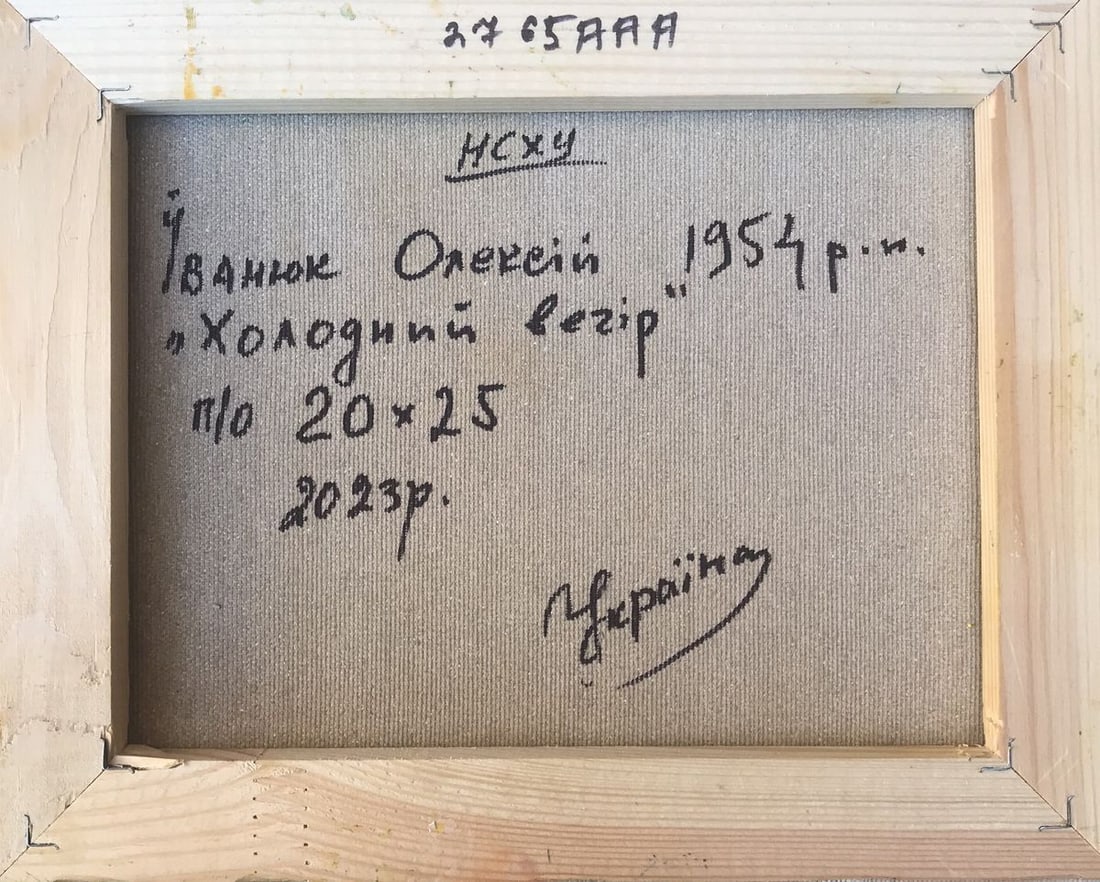 2765ААА
НСХУ
Іванюк Олексій 1954 р.н.
„Холодний вечір"
п/о 20×25
2023р.
Україна